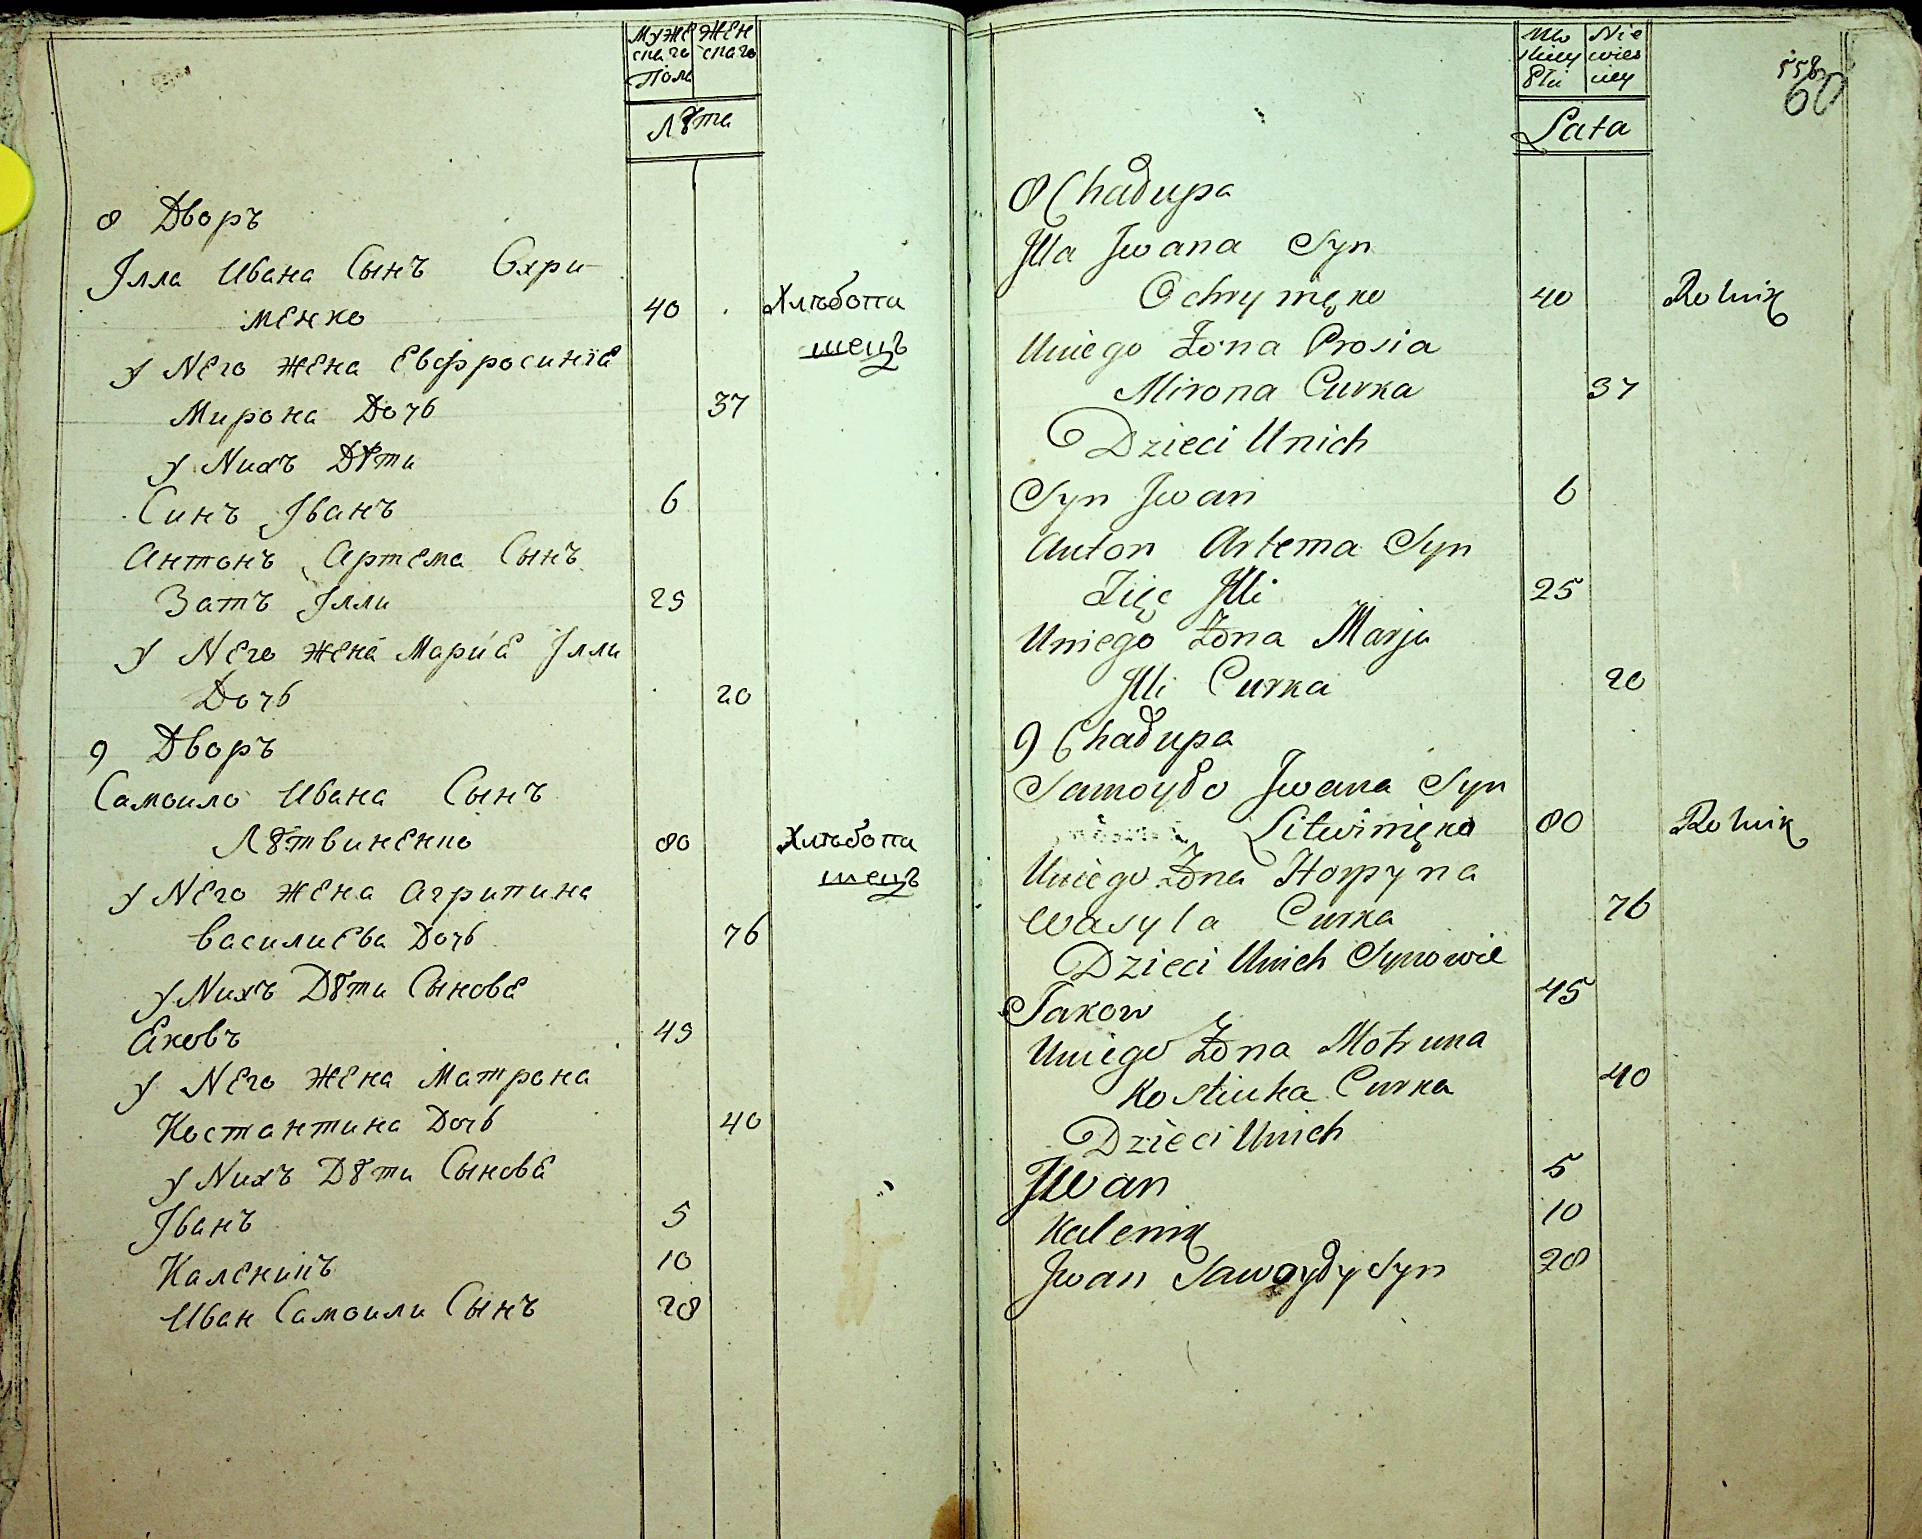 Муже Жен
скаго скаго
Полъ
Лѣта
8 Дворъ
Iлла Ивана Сынъ Охри-
менко 40 Хлѣбопа
шецъ
у Него жена Евфросинiе
Мирона Дочь 37
у Нихъ Дѣти
Синъ Iванъ 6
Антонъ Артема Сынъ
Затъ Iлли 25
у Него жена Мариѐ Iлли
Дочь 20
9 Дворъ
Самоило Ивана Сынъ
Лѣтвиненко 80 Хлѣбопа
шецъ
у Него жена Агрипина
Василиева Дочь 76
у Нихъ Дѣти Сынове
Яковъ 45
у Него жена Матрона
Костантина Дочь 40
у Нихъ Дѣти Сынове
Iванъ 5
Каленикъ 10
Иван Самоили Сынъ 28
Mę Nie
skiey wies
Płci ciey
558
60
Lata
8 Chałupa
Jlla Jwana Syn
Ochrymięko 40 Rolnik
Uniego Żona Prosia
Mirona Curka 37
Dzieci Unich
Syn Jwan 6
Anton Artema Syn
Zięć Jlli 25
Uniego Żona Marja
Jlli Curka 20
9 Chałupa
Samoyło Jwana Syn
Litwinięko 80 Rolnik
Uniego Żona Horpyna
Wasyla Curka 76
Dzieci Unich Synowie
Jakow 45
Uniego Żona Motruna
Kostiuka Curka 40
Dzieci Unich
Jwan 5
Kalenik 10
Jwan Samoyły Syn 28